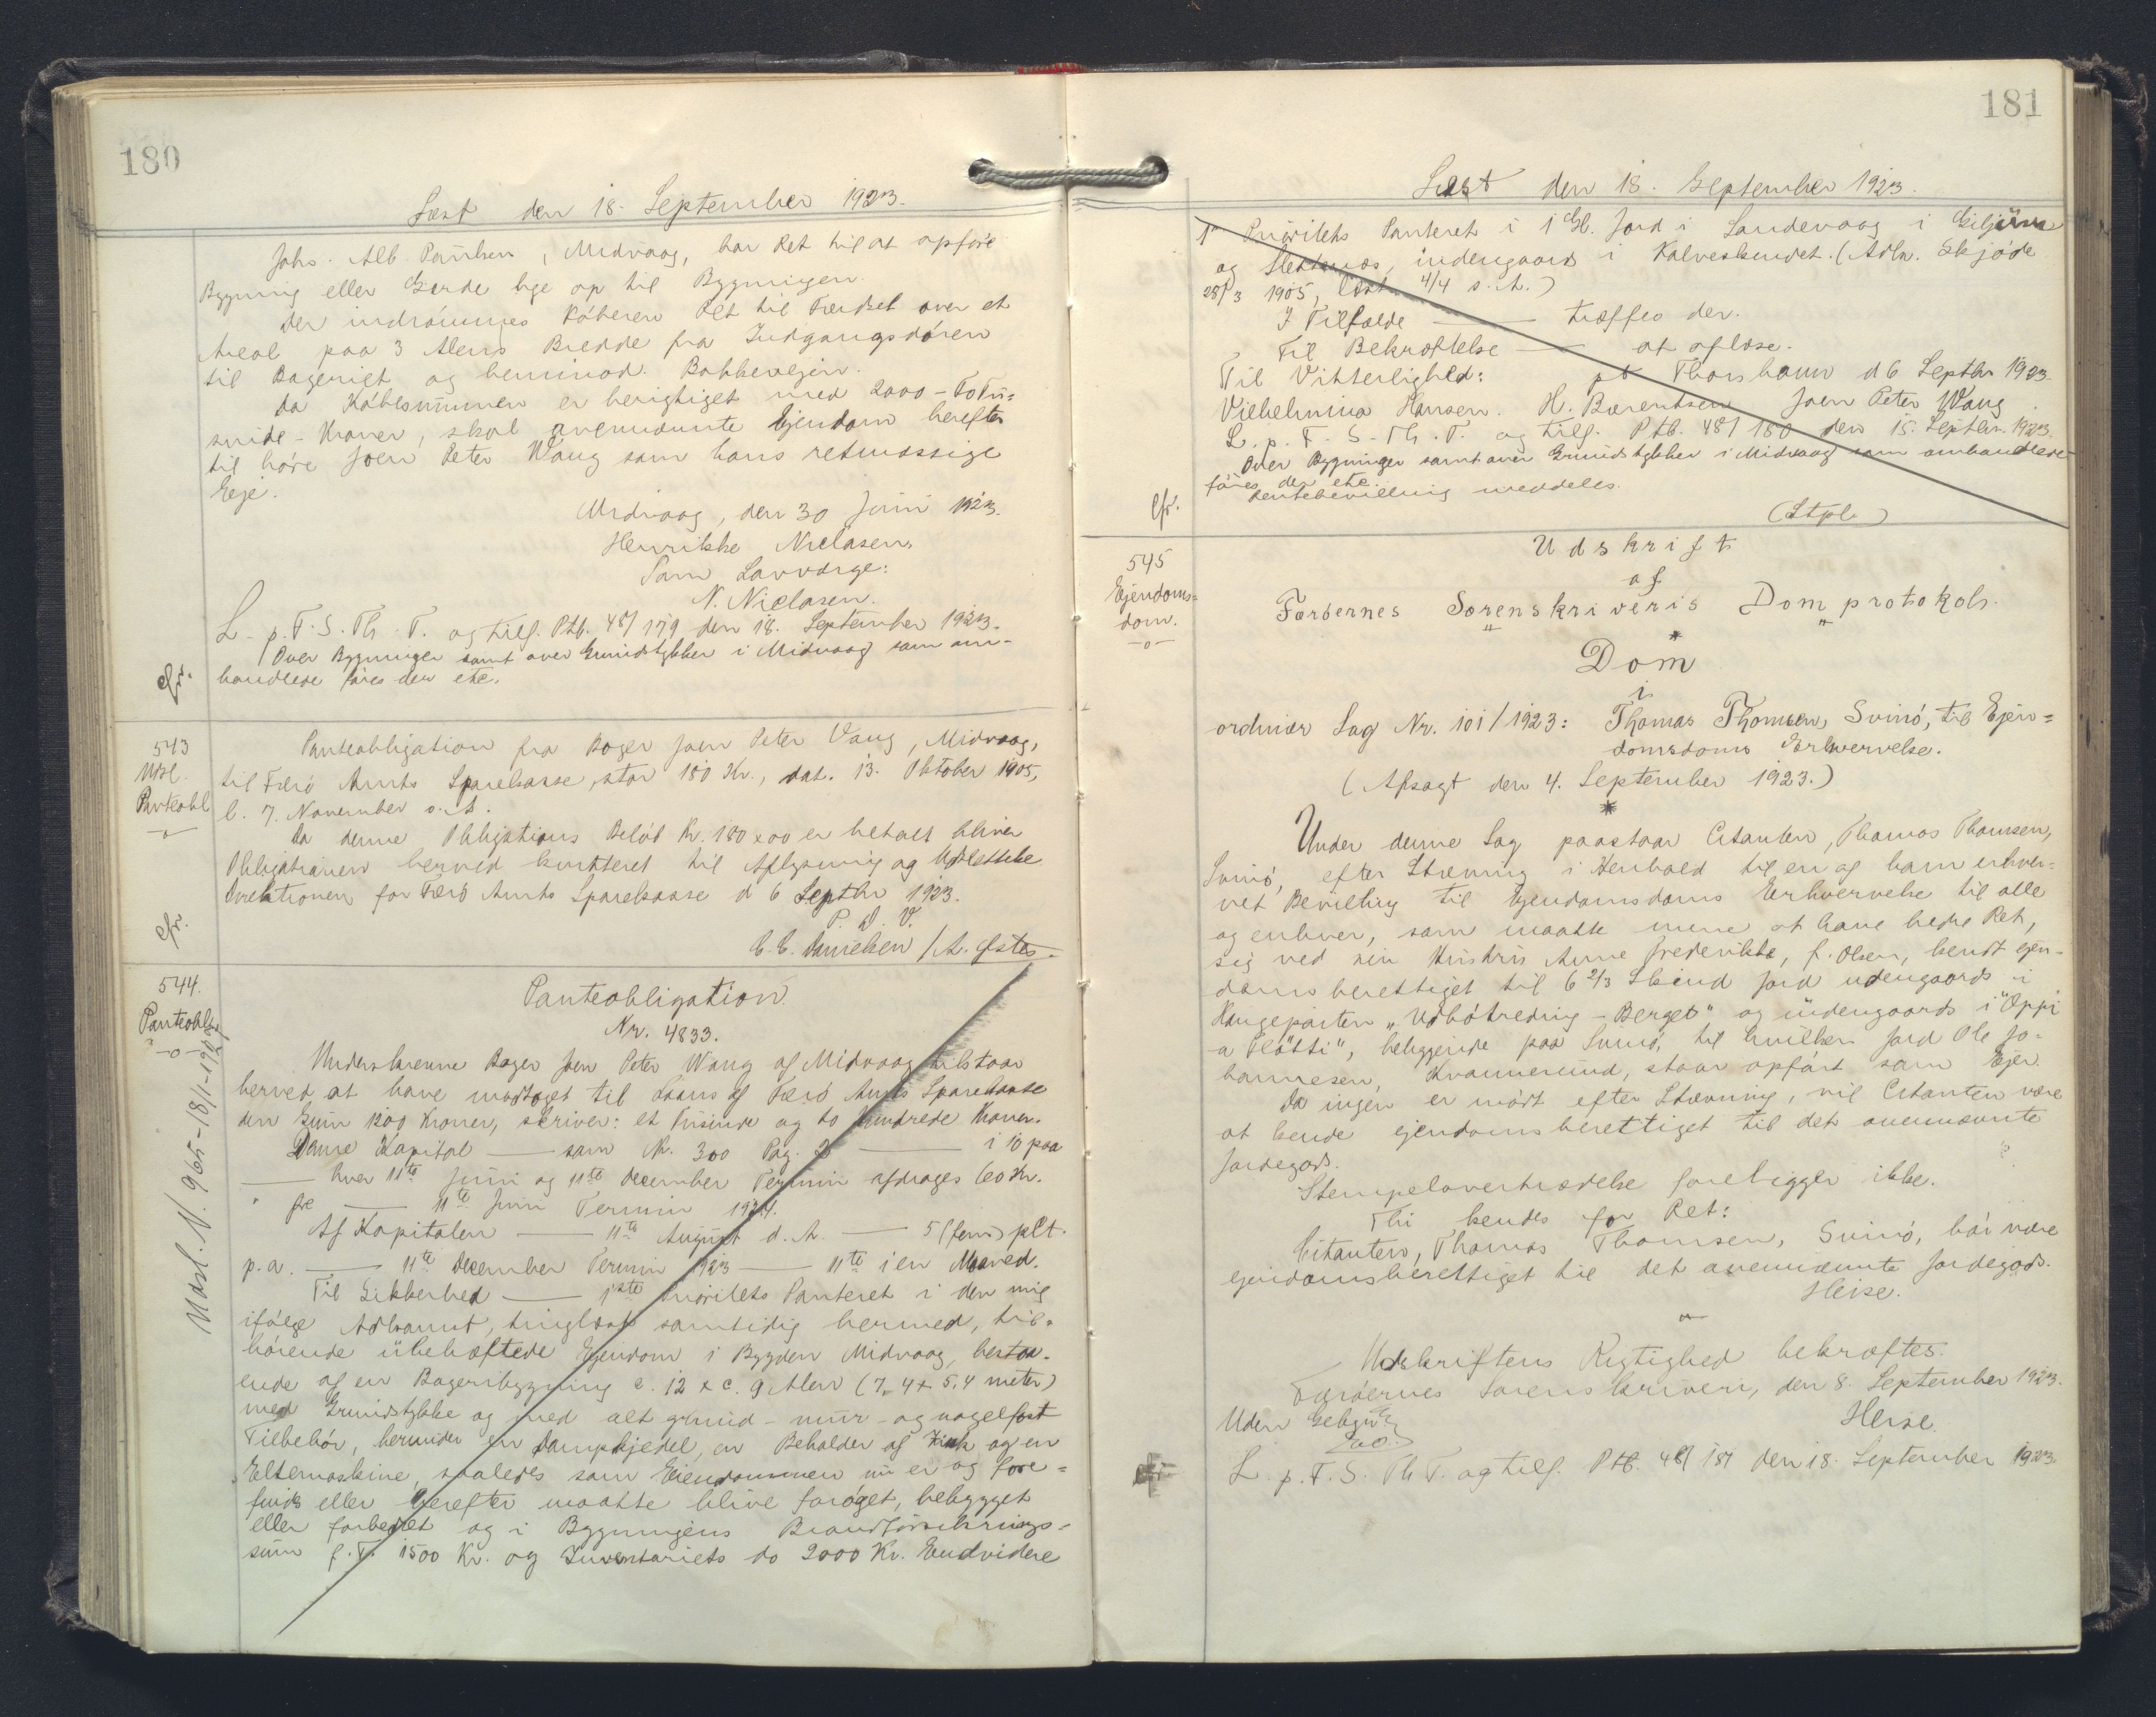 180
Læst den 18. September 1923.
Johs. Alb. Poulsen, Midvaag, har Ret til at opføre
Bygning eller Gærde lige op til Bygningen.
Der indrømmes Køberen Ret til Færdsel over et
Areal paa 3 Alens Bredde fra Indgangsdøren
til Bageriet og henimod Bakkevejen.
Da Købesummen er berigtiget med 2000 - ToTu=
sinde - Kroner, skal ovennævnte Ejendom herefter
til høre Joen Peter Waag som hans retmæssige
Eje.
Midvaag, den 30 Juni 1923.
Henrikke Niclasen.
Som Lavværge:
N. Niclasen.
L. p. F. S. Th. T. og tilf. Ptb. 48/179 den 18. September 1923.
Over Bygninger samt over Grundstykker i Midvaag som om-
handlede føres der etc.
cfr.
543
Udsl.
Panteobl
-o-
Panteobligation fra Bager Joen Peter Vaag, Midvaag,
til Færø Amts Sparekasse, stor 180 Kr., dat. 13. Oktober 1905,
l. 7. November s. A.
Da denne Obligations Beløb Kr. 180 x 00 er betalt bliver
Obligationen herved kvitteret til Aflysning og Udslettelse
Direktionen for Færø Amts Sparekasse d 6 Septbr 1923.
P. D. V.
C. C. Danielsen / A.
cfr.
544.
Panteobl.
-o-
Udsl. N. 965-18/1-1928
Panteobligation
Nr. 4833.
Underskrevne Bager Joen Peter Waag af Midvaag tilstaar
herved at have modtaget til Laans af Færø Amts Sparekasse
den Sum 1200 Kroner, skriver: et Tusinde og to Hundrede Kroner.
Denne Kapital — som Nr. 300 Pag. — i 10 paa
— hver 11te Juni og 11te December Termin afdrages 60 Kr.
" fre — 11te Juni Termin 1924.
Af Kapitalen — 11te August d. A. — 5 (fem) pCt.
p.a. — 11te December Termin 1923 — 11te i en Maaned.
Til Sikkerhed — 1ste Prioritets Panteret i den mig
ifølge Adkomst, tinglæst samtidig hermed, til=
hørende ubehæftede Ejendom i Bygden Midvaag, bestaa-
ende af en Bageribygning c. 12 x c. 9 Alen (7,4 x 5,4 meter)
med Grundstykke og med alt grund- mur- og nagelfast
Tilbehør, herunder en Dampkjedel, en Beholder af Zink og en
Æltemaskine, saaledes som Ejendommen nu er og fore=
findes eller herefter maatte blive forøget, bebygget
eller forbedret og i Bygningens Brandforsikrings-
sum f. T. 1500 Kr. og Inventariets do 2000 Kr. Endvidere
181
Læst den 18. September 1923.
1ste Prioritets Panteret i 1 Gl. Jord i Sandevaag i Giljum
og indengaards i Kalveskindet. (Adk. Skjøde
28/3 1905, læst 4/4 s. A.)
I Tilfælde — træffes der.
Til Bekræftelse — at oplæse.
Til Vitterlighed: pt Thorshavn d 6 Septbr 1923.
Vilhelmina Hansen. H. Bærentsen Joen Peter Waag
L. p. F. S. Th. T. og tilf. Ptb. 48/180 den 15. Septbr. 1923.
Over Bygninger samt over Grundstykker i Midvaag som omhandlede
føres der etc.
Rentebevilling meddeles.
(Stpl.)
cfr.
545
Ejendoms=
dom.
-o-
Udskrift
af
Færøernes Sorenskriveris Domprotokol.
*
Dom
i
ordinær Sag Nr. 101/1923: Thomas Thomsen, Svinø, til Ejen=
domsdoms Erhvervelse.
(Afsagt den 4. September 1923.)
*
Under denne Sag paastaar Citanten, Thomas Thomsen,
Svinø, efter Stævning i Henhold til en af ham erhver-
vet Bevilling til Ejendomsdoms Erhvervelse til alle
og enhver, som maatte mene at have bedre Ret,
sig ved sin Hustru Anne Frederikke, f. Olsen, kendt ejen-
domsberettiget til 6 2/3 Skind Jord udengaards i
Haugeparten "Udbøtredring - Berget" og indengaards i "Oppi
a Fløtti", beliggende paa Svinø, til hvilken Jord Ole Jo-
hannesen, Kvannesund, staar opført som Ejer.
Da ingen er mødt efter Stævning, vil Citanten være
at kende ejendomsberettiget til det ovennævnte
Jordegods.
Stempelovertrædelse foreligger ikke.
Thi kendes for Ret:
Citanten, Thomas Thomsen, Svinø, bør være
ejendomsberettiget til det ovennævnte Jordegods.
Heise.
Udskriftens Rigtighed bekræftes.
Færøernes Sorenskriveri, den 8. September 1923.
Uden Gebyr Heise.
L. p. F. S. Th T. og tilf. Ptb. 48/181 den 18. September 1923.
cfr.